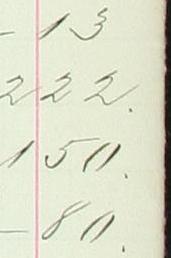 - 13
222.
150.
- 80.